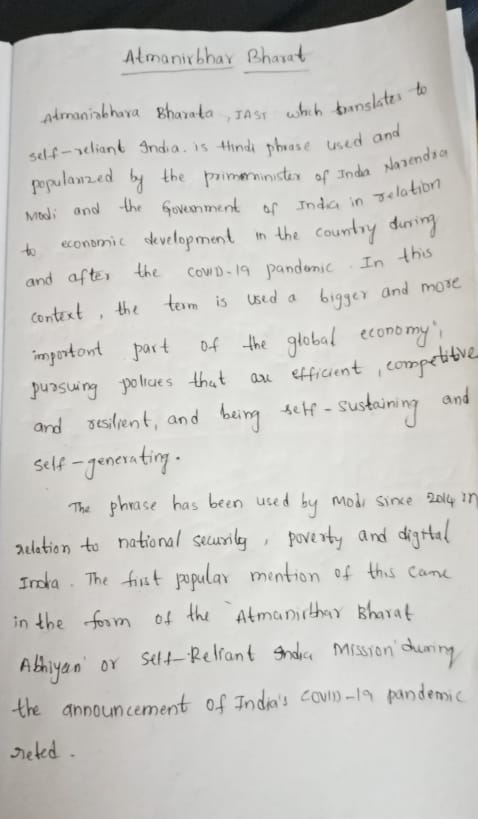 Atmanirbhar Bharat
Atmanirbhara Bharata, IAST which translates to
self-reliant India. is Hindi phrase used and
popularized by the primeminister of India Narendra
Modi and the Government of India in relation
to economic development in the country during
and after the COVID-19 pandemic. In this
context, the term is used a bigger and more
important part of the global economy',
pursuing policies that are efficient, competitive
and resilient, and being self-sustaining and
self-generating.
The phrase has been used by Modi since 2014 in
relation to national security, poverty and digital
India. The first popular mention of this came
in the form of the 'Atmanirbhar Bharat
Abhiyan' or Self-Reliant India Mission' during
the announcement of India's COVID-19 pandemic
releted.